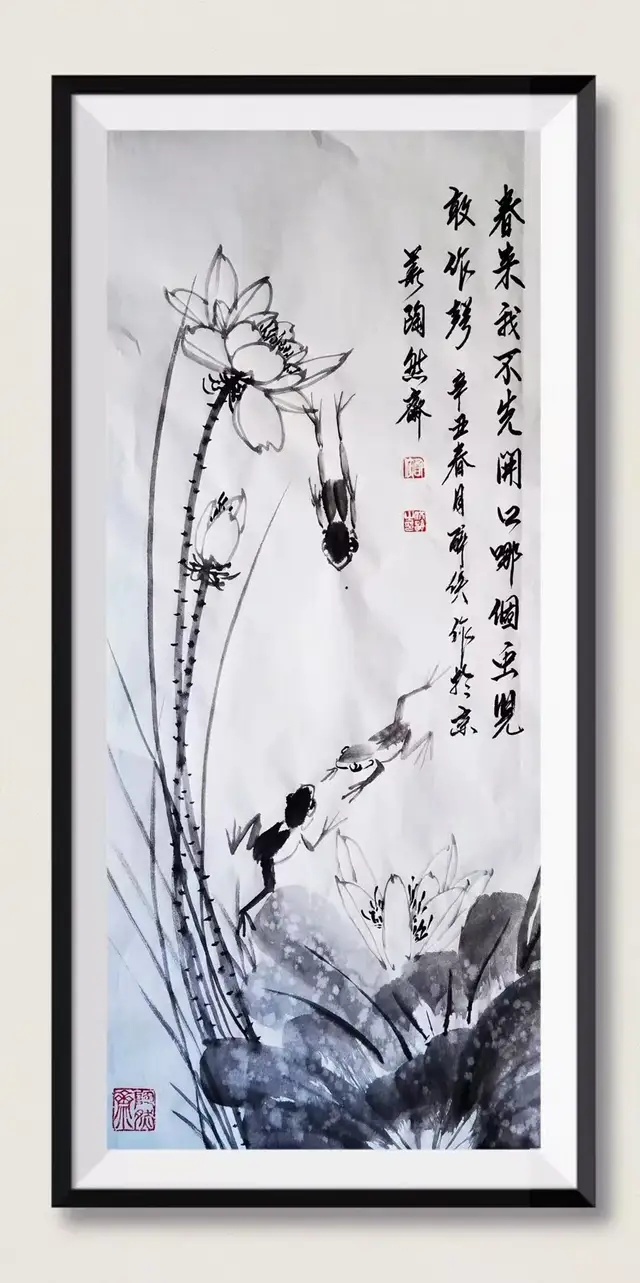 春来我不先開口哪個虫兒
敢作聲 辛丑春月醉侯作於京
華陶然齋